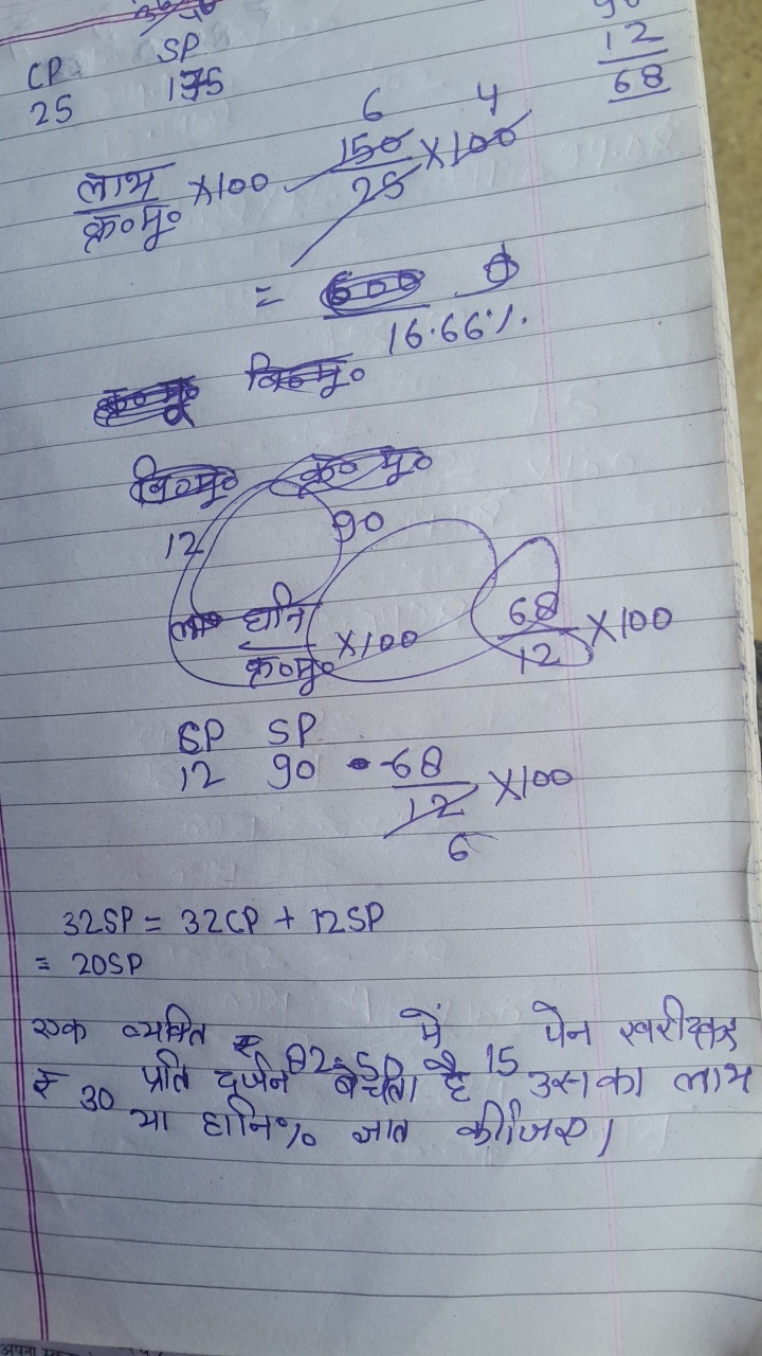 90
12
68
CP SP
25 175
6 4
लाभ/क्र०मू० ×100 150/25 ×100
= 600
16.66%
वि०मू०
वि०मू० क्र०मू०
12 90
हानि/क्र०मू० ×100 68/12 ×100
SP SP
12 90 -68/12 ×100
6
32SP = 32CP + 12SP
= 20SP
एक व्यक्ति ₹ में 15 पेन खरीदकर
₹ 30 प्रति दर्जन बेचता है उसका लाभ
या हानि% ज्ञात कीजिए।